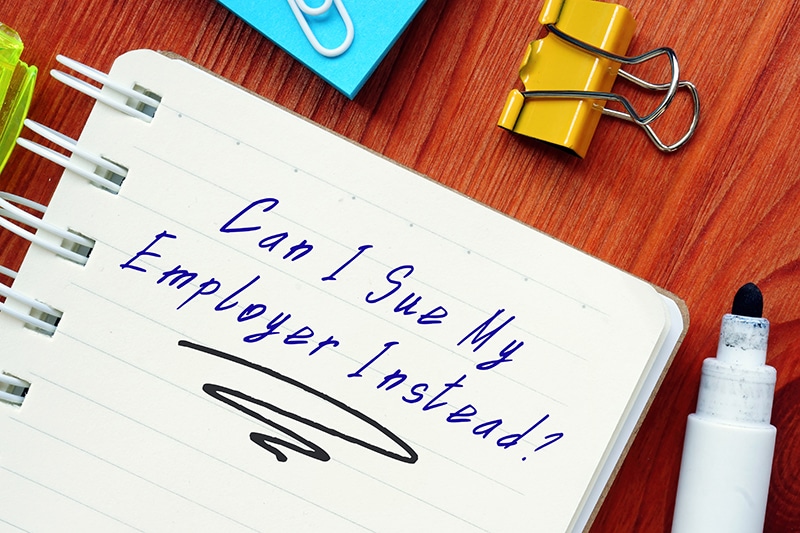 Can I Sue My
Employer Instead?